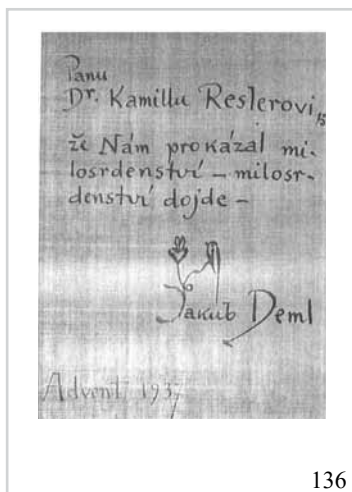 Panu
Dr. Kamillu Reslerovi,
že Nám prokázal mi-
losrdenství – milosr-
denství dojde –
Jakub Deml
Advent, 1937
136